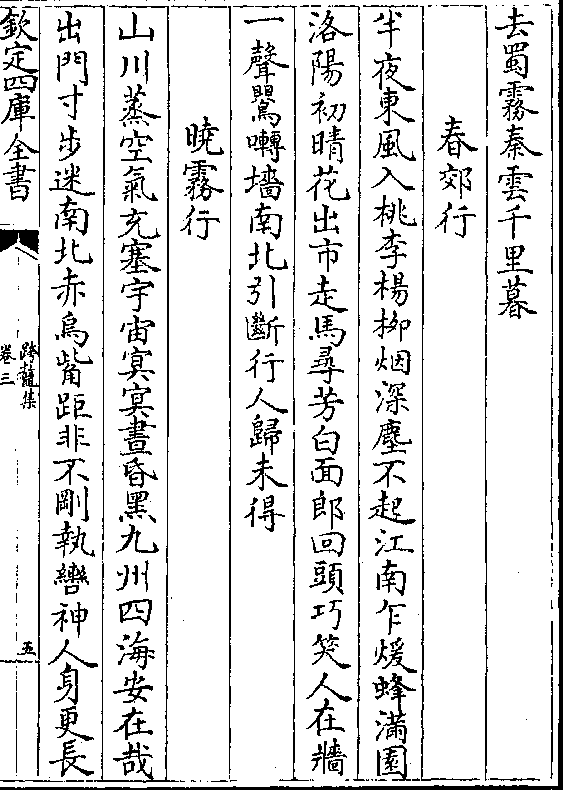 去蜀霧秦雲千里暮
春郊行
半夜東風入桃李楊柳烟深塵不起江南乍煖蜂滿園
洛陽初晴花出市走馬尋芳白面郎回頭巧笑人在牆
一聲鸎囀墻南北引斷行人歸未得
曉霧行
山川蒸空氣充塞宇宙冥冥晝昏黑九州四海安在哉
出門寸步迷南北赤烏觜距非不剛執轡神人身更長
欽定四庫全書
卷三
五